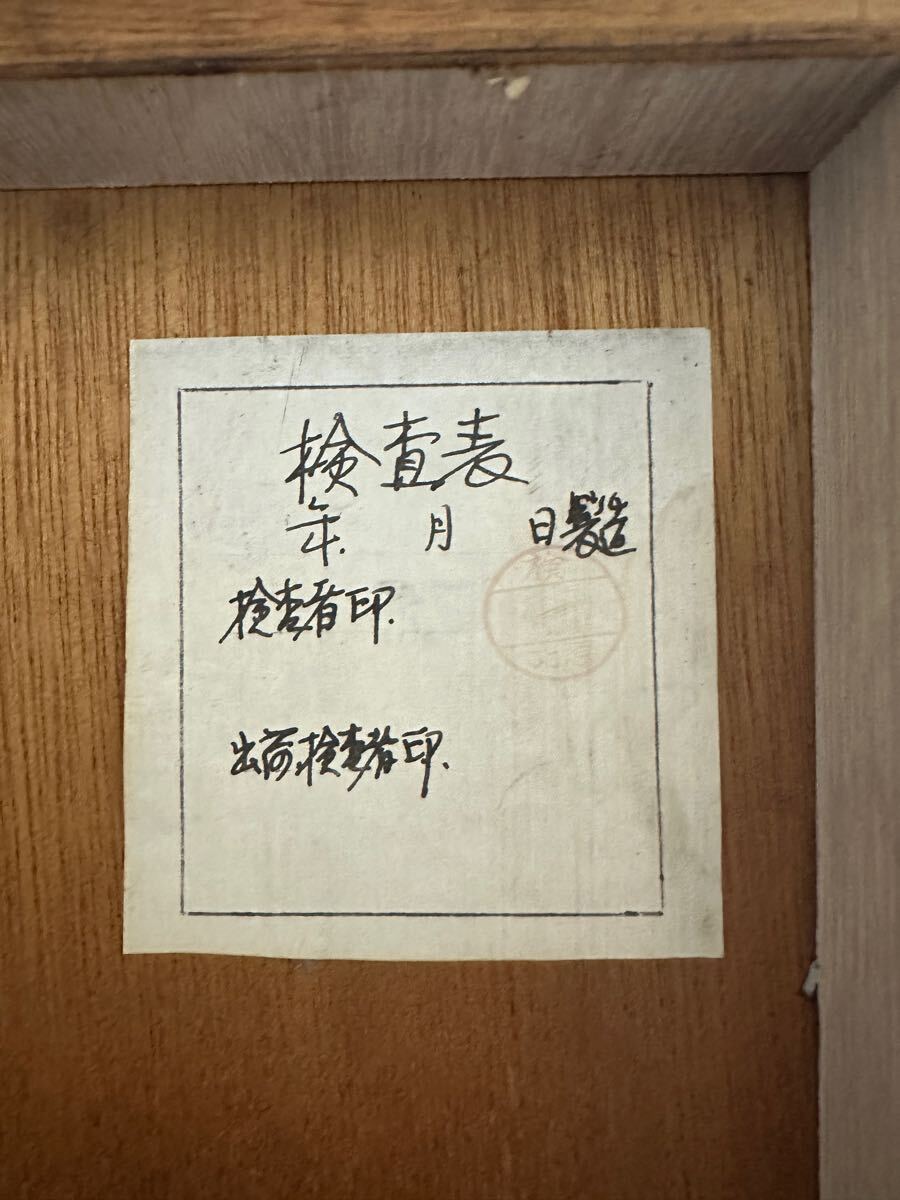 検査表
年 月 日製造
検査者印.
出荷検査者印.